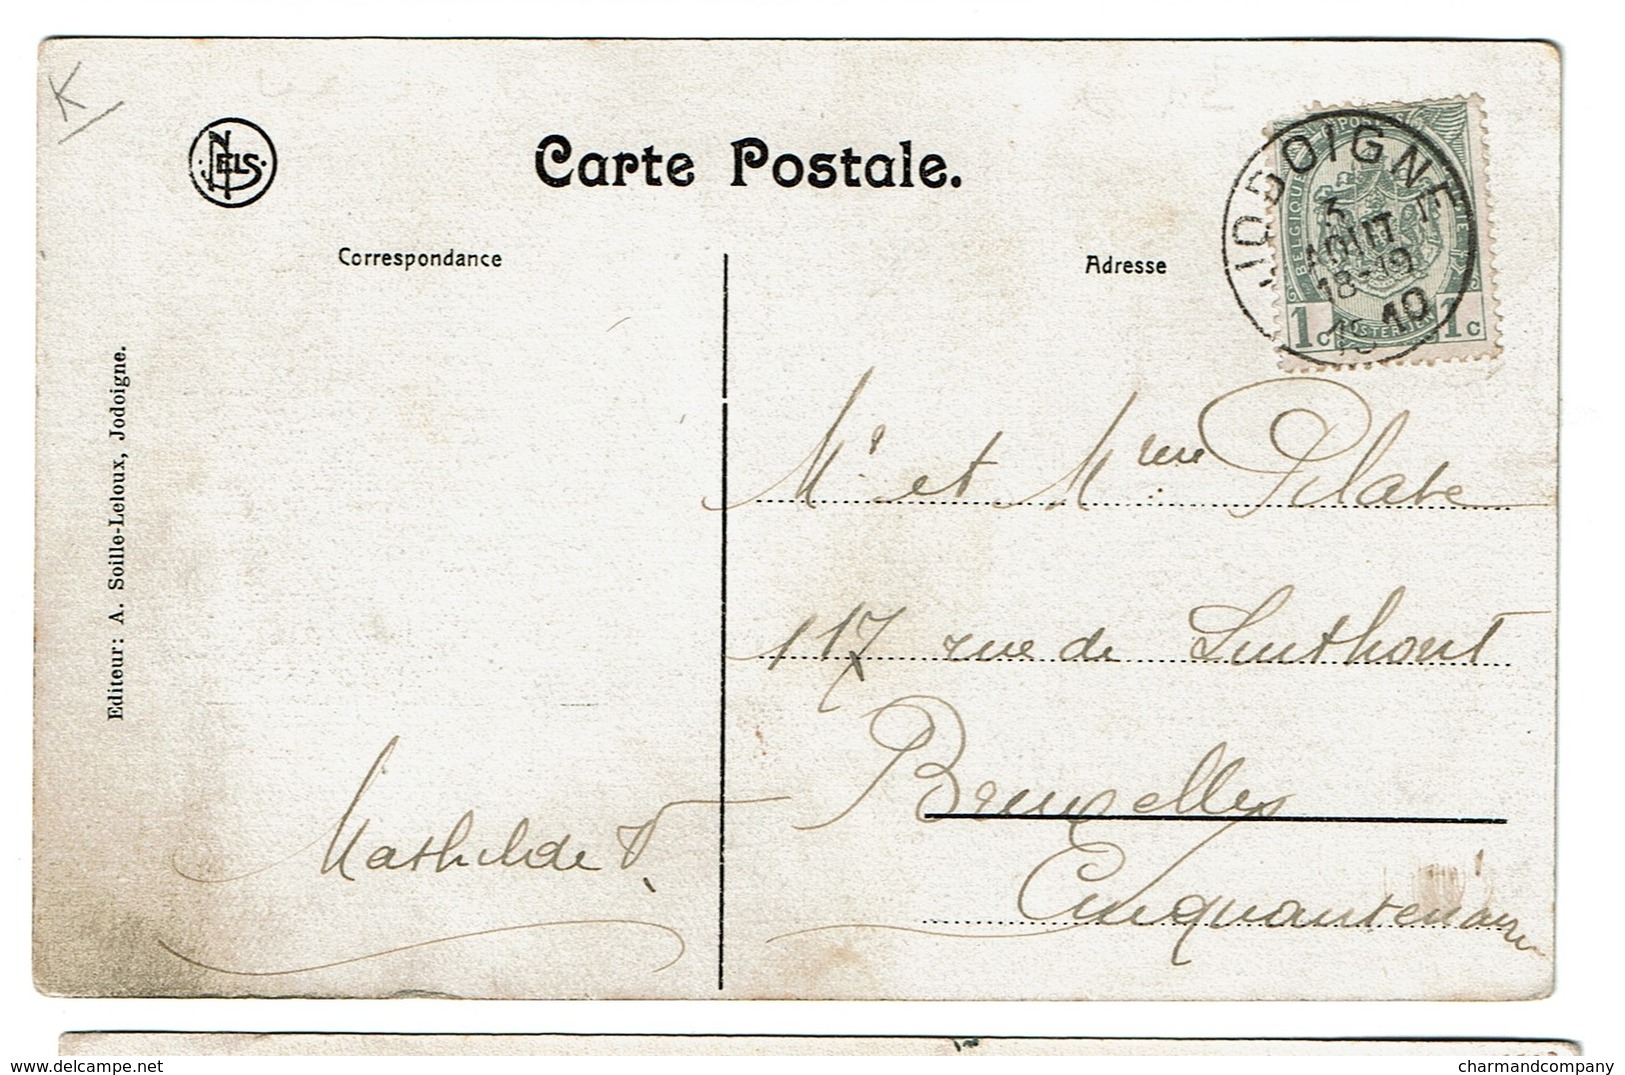 K
NELS
Carte Postale.
Correspondance
Adresse
JODOIGNE
3
AOUT
18-19
1910
BELGIQUE
1c 1c
Editeur: A. Soille-Leloux, Jodoigne.
Mr et Mme Pilate
117 rue de Linthout
Bruxelles
Cinquantenaire
Mathilde V.
www.delcampe.net
charmandcompany